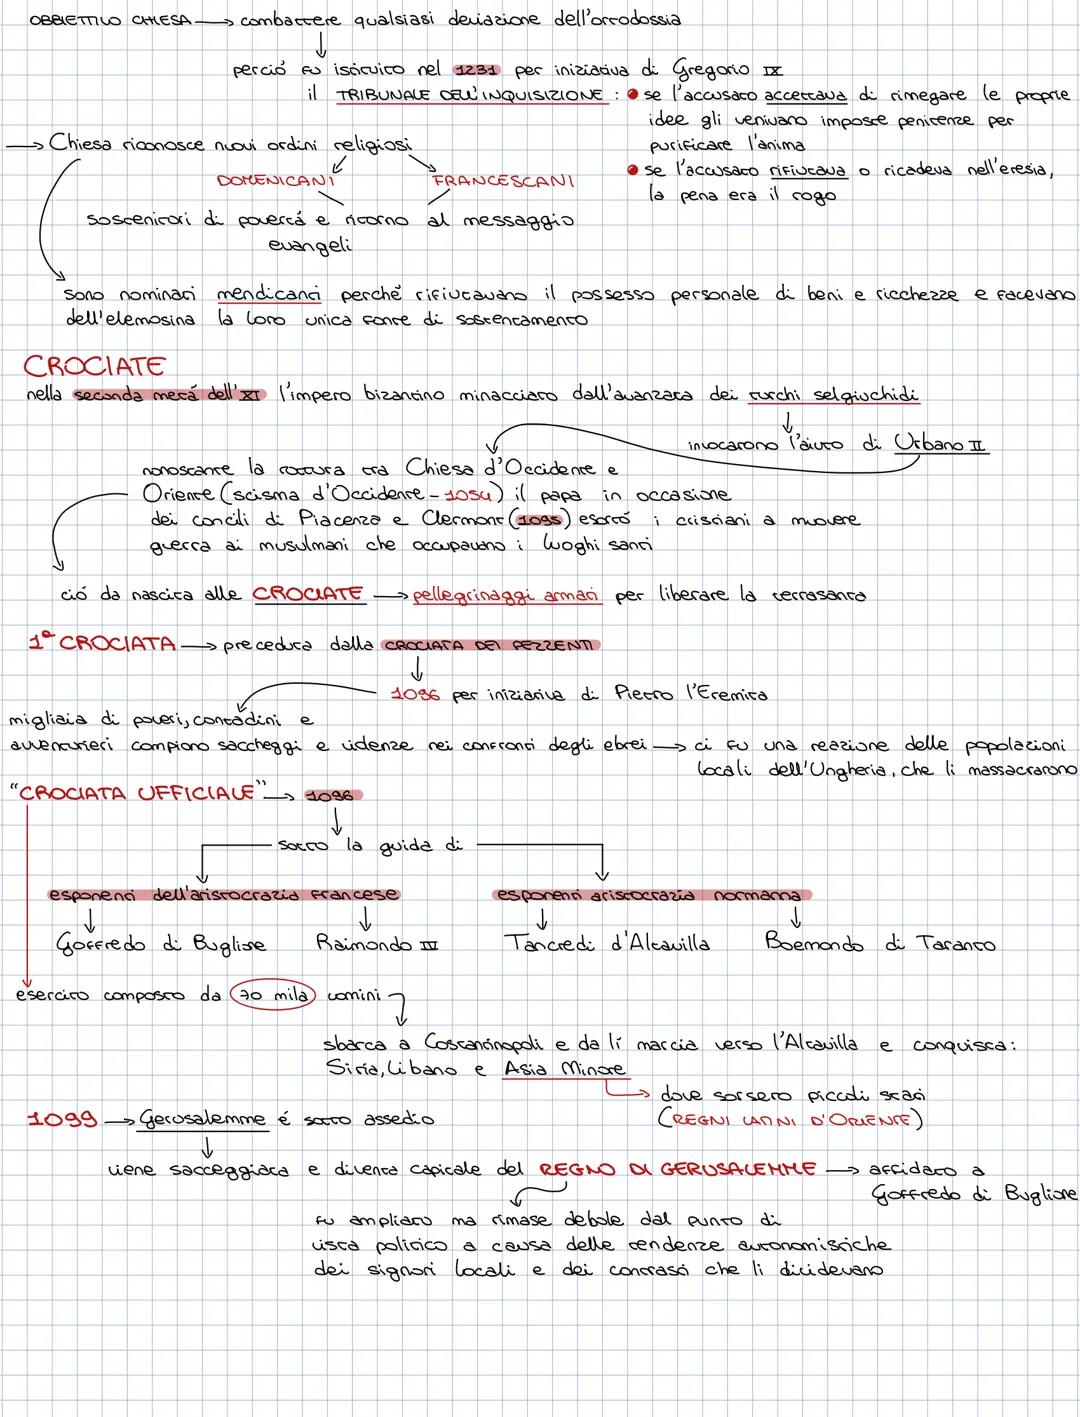 OBBIETTIVO CHIESA → combattere qualsiasi deviazione dell'ortodossia
perció fu istituito nel 1231 per iniziativa di Gregorio IX
il TRIBUNALE DELL'INQUISIZIONE : • se l'accusato accettava di rimegare le proprie
idee gli venivano imposte penitenze per
purificare l'anima
• se l'accusato rifiutava o ricadeva nell'eresia,
la pena era il rogo
→ Chiesa riconosce nuovi ordini religiosi
DOMENICANI FRANCESCANI
sostenitori di povertá e ritorno al messaggio
evangeli
sono nominati mendicanti perché rifiutavano il possesso personale di beni e ricchezze e facevano
dell'elemosina la loro unica fonte di sostentamento
CROCIATE
nella seconda metá dell'XI l'impero bizantino minacciato dall'avanzata dei turchi selgiuchidi
invocarono l'aiuto di Urbano II
nonostante la rottura tra Chiesa d'Occidente e
Oriente (scisma d'Occidente - 1054) il papa in occasione
dei concili di Piacenza e Clermont (1095) esortó i cristiani a muovere
guerra ai musulmani che occupavano i luoghi santi
ció da nascita alle CROCIATE → pellegrinaggi armati per liberare la terrasanta
1ª CROCIATA → preceduta dalla CROCIATA DEI PEZZENTI
1096 per iniziativa di Pietro l'Eremita
migliaia di poveri, contadini e
avventurieri compiono saccheggi e violenze nei confronti degli ebrei → ci fu una reazione delle popolazioni
locali dell'Ungheria, che li massacrarono
"CROCIATA UFFICIALE" → 1096
sotto la guida di
esponenti dell'aristocrazia francese esponenti aristocrazia normanna
Goffredo di Buglione Raimondo III Tancredi d'Altavilla Boemondo di Taranto
esercito composto da 70 mila uomini
sbarca a Costantinopoli e da lí marcia verso l'Altavilla e conquista:
Siria, Libano e Asia Minore
→ dove sorsero piccoli stati
(REGNI LATINI D'ORIENTE)
1099 → Gerusalemme é sotto assedio
viene sacceggiata e diventa capitale del REGNO DI GERUSALEMME → affidato a
Goffredo di Buglione
fu ampliato ma rimase debole dal punto di
vista politico a causa delle tendenze autonomistiche
dei signori locali e dei contrasti che li dividevano